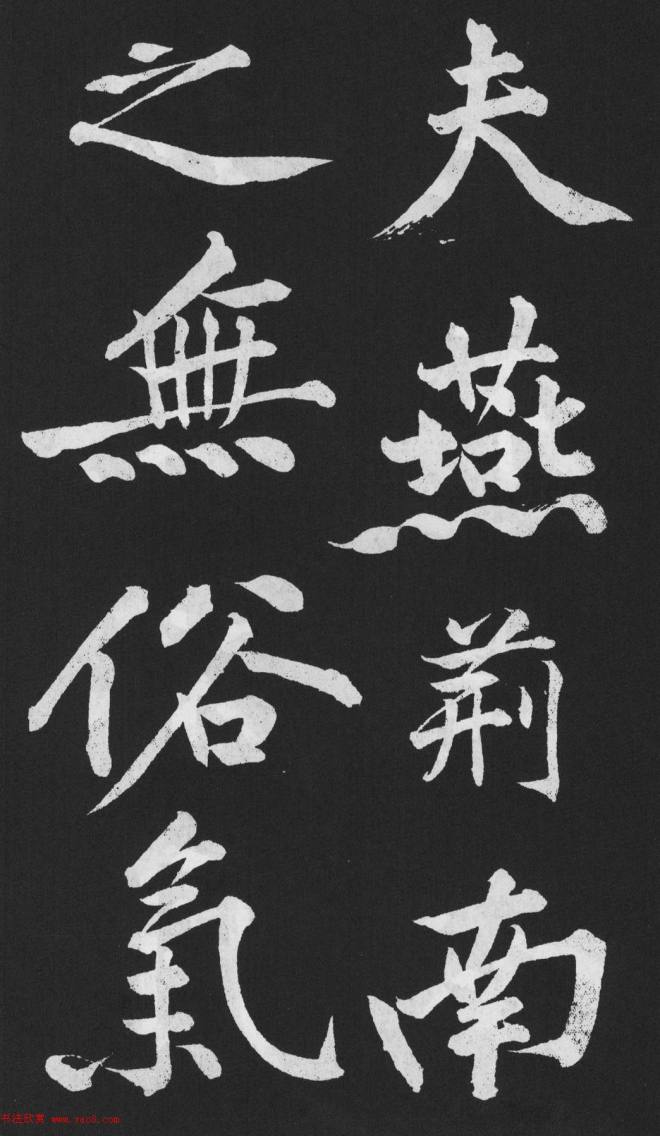 夫燕荆南
之無俗氣
书法欣赏 www.yac8.com